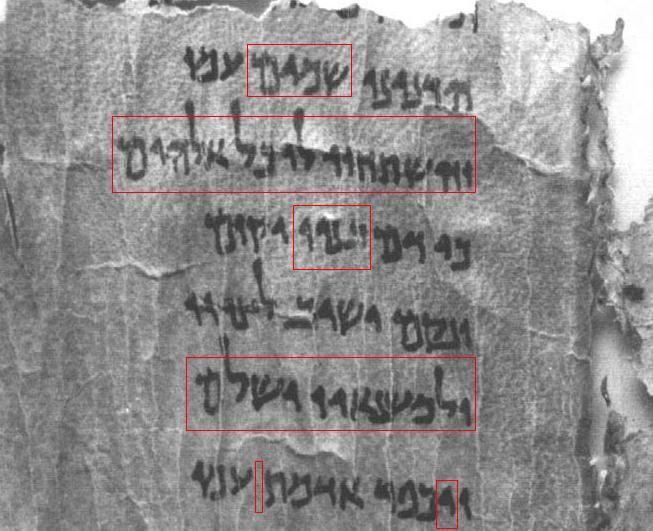 הרנינו שמים עמו
והשתחוו לו כל אלהים
כי דם בניו יקום
ונקם ישיב לצריו
ולמשנאיו ישלם
ויכפר אדמת עמו